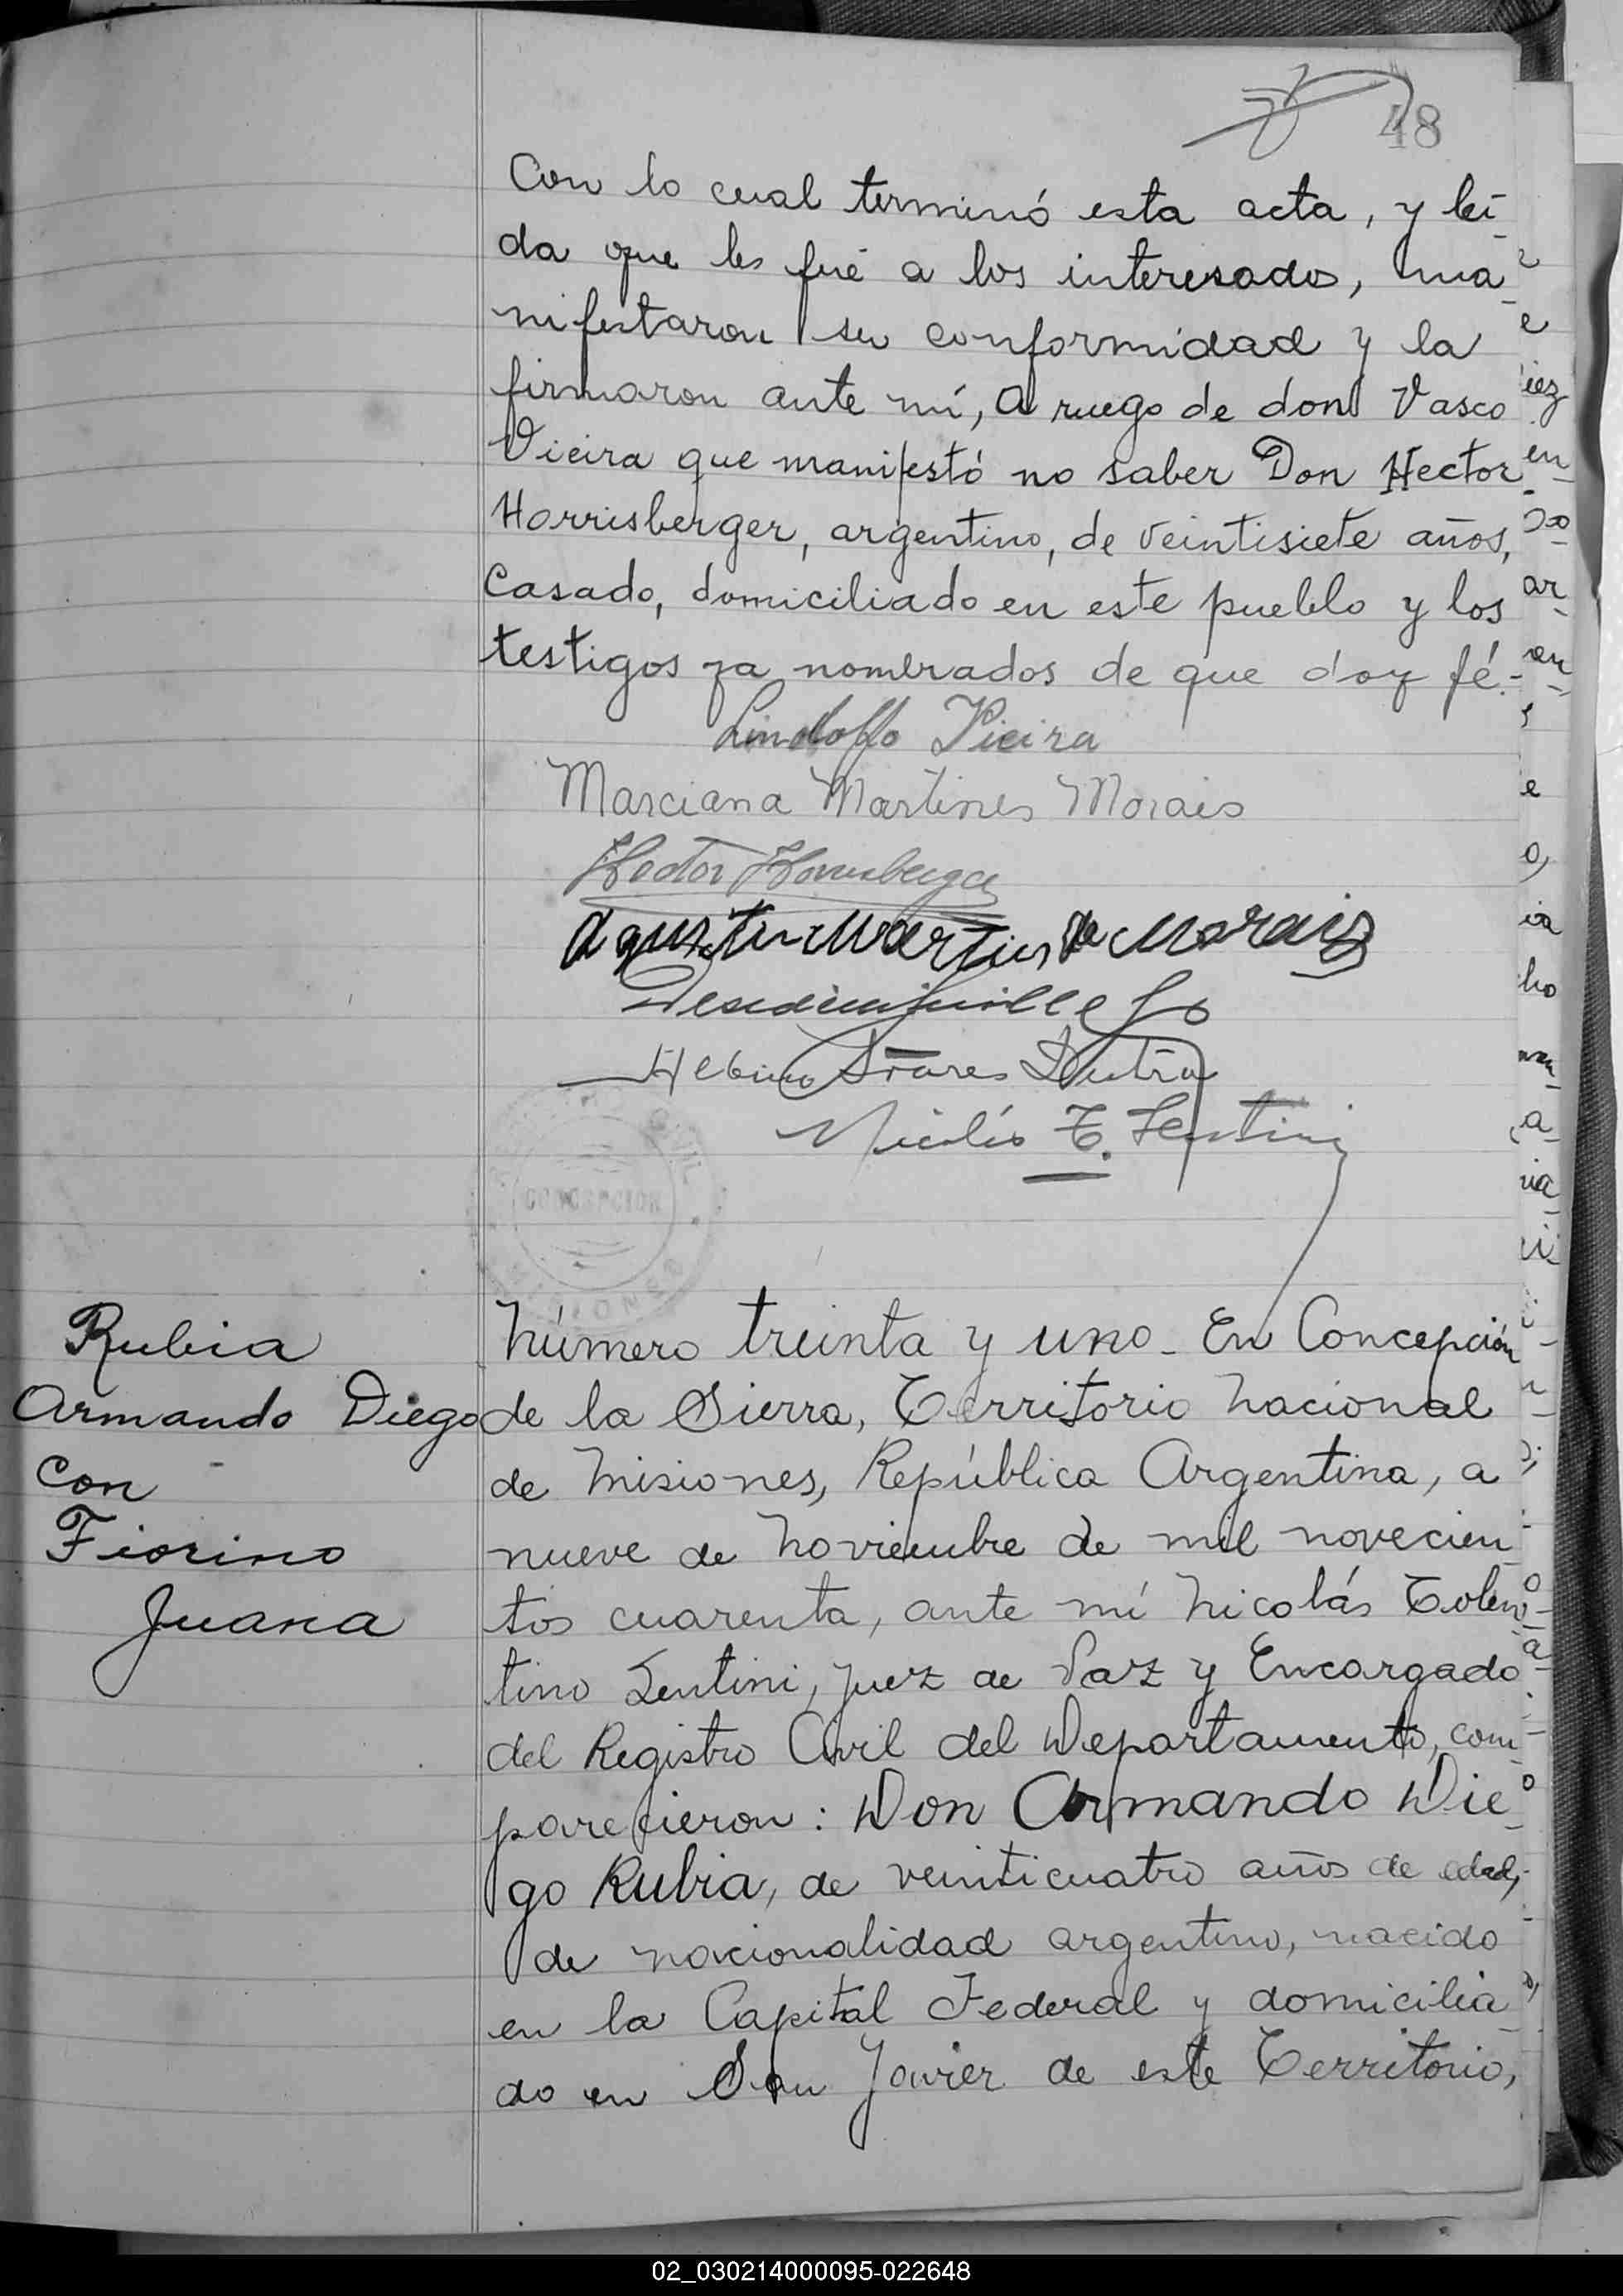 48
Con lo cual terminó esta acta, y leí-
da que les fué a los interesados, ma-
nifestaron su conformidad y la
firmaron ante mí, a ruego de don Vasco
Vieira que manifestó no saber Don Hector
Horrisberger, argentino, de veintisiete años,
Casado, domiciliado en este pueblo y los
testigos ya nombrados de que doy fé.-
Lindolfo Vieira
Marciana Martines Morais
Hector Horrisberger
Agustin Martins de Morais
Albino Soares Dutra
Nicolás T. Lentini
REGISTRO CIVIL
CONCEPCION
MISIONES
Rubia
Armando Diego
con
Fiorino
Juana
Número treinta y uno - En Concepción
de la Sierra, Territorio Nacional
de Misiones, República Argentina, a
nueve de Noviembre de mil novecien
tos cuarenta, ante mí Nicolás Tolen-
tino Lentini, Juez de Paz y Encargado
del Registro Civil del Departamento, com-
parecieron: Don Armando Die-
go Rubia, de veinticuatro años de edad,
de nacionalidad argentino, nacido
en la Capital Federal y domicilia-
do en San Javier de este Territorio,
02_030214000095-022648